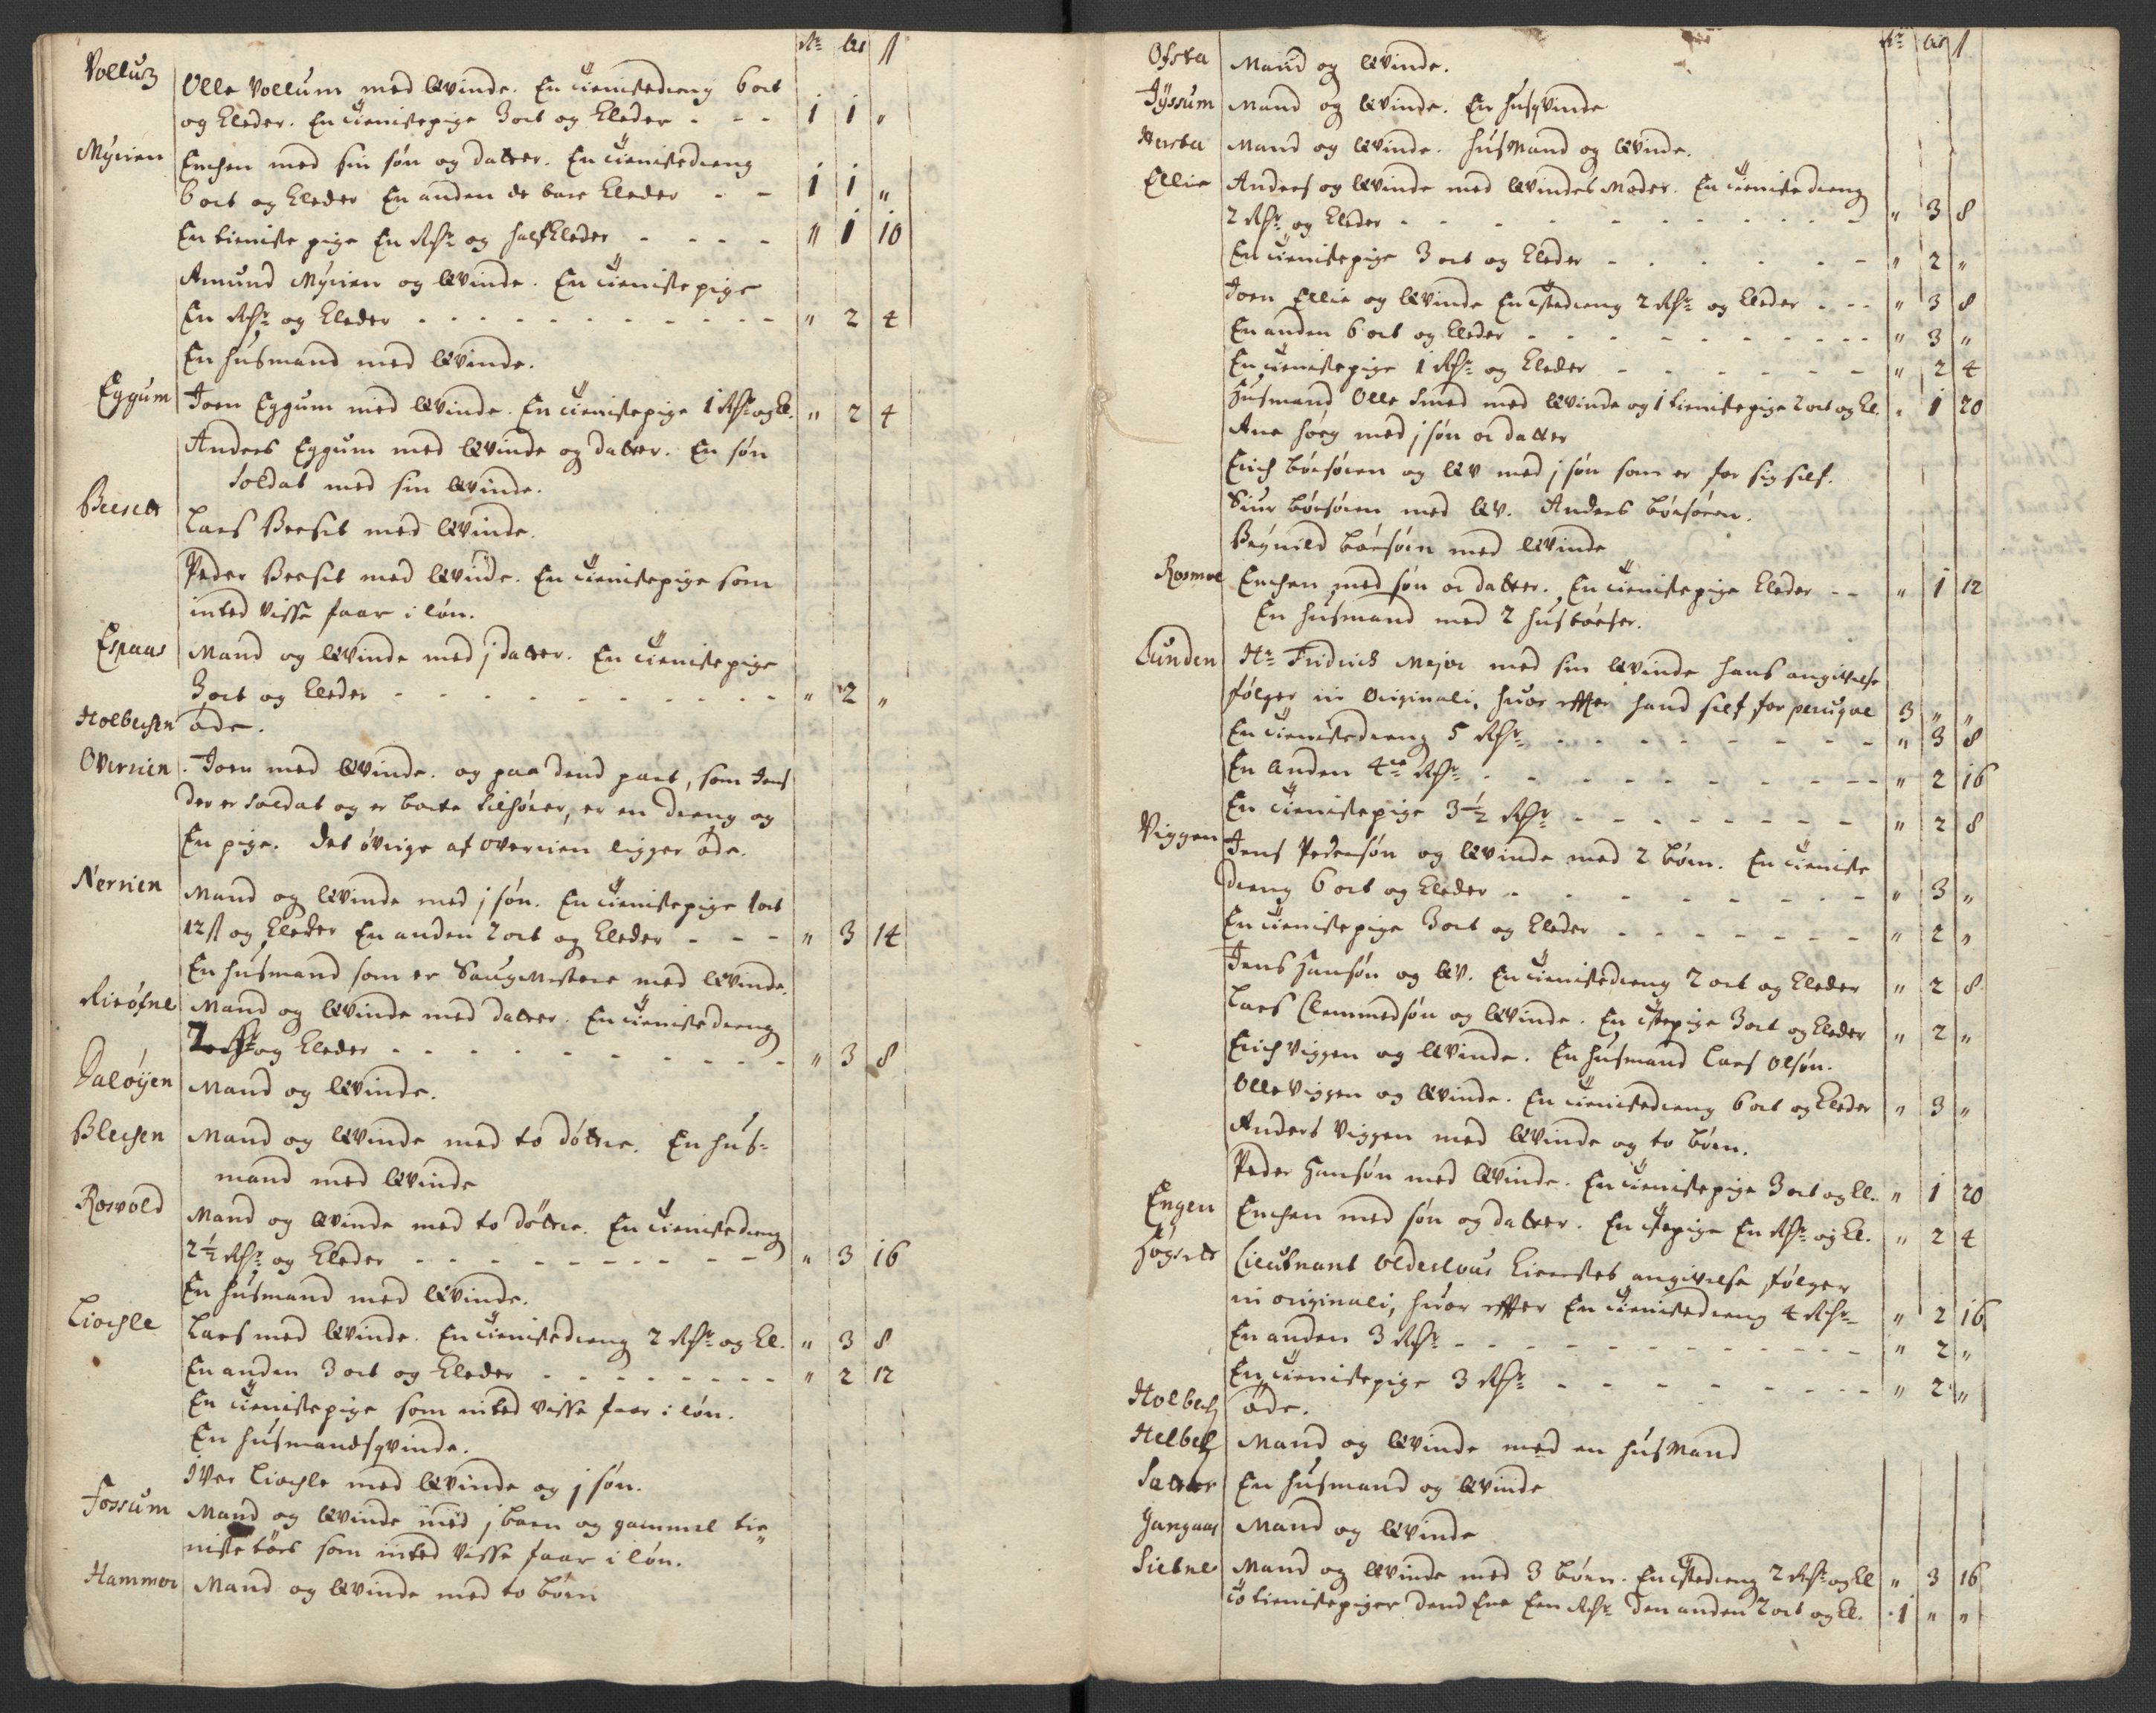 Rr ort ß
Vollum Olle Vollum med Qvinde. En tienistedreng 6 ort
og Kleder. En tienistepige 3 ort og Kleder - - - 1 1 "
Myrien Enchen med sin søn og datter. En tienistedreng
6 ort og Kleder En anden de bare Kleder - - 1 1 "
En tieniste pige En Rdr og half Kleder - - - - " 1 10
Amund Myrien og Qvinde. En tienistepige
En Rdr og Kleder - - - - - - - - - - " 2 4
En husmand med Qvinde.
Eggum Joen Eggum med Qvinde. En tienistepige 1 Rdr og Kl. " 2 4
Anders Eggum med Qvinde og datter. En søn
Soldat med sin Qvinde.
Lars Beesit med Qvinde.
Peder Beesit med Qvinde. En tienistepige som
inted visse faar i løn.
Espaas Mand og Qvinde med j datter. En tienistepige
3 ort og Kleder - - - - - - - - - - " 2 "
Holbechen øde.
Overnien Joen med Qvinde. og paa dend part, som Jens
der er Soldat og er borte tilhører, er en dreng og
En pige. Det øvrige af overnien ligger øde.
Nernien Mand og Qvinde med j søn. En tienistepige 1 ort
12 ß og Kleder En anden 2 ort og Kleder - - - " 3 14
En husmand som er Saugmester med Qvinde.
Mand og Qvinde med datter. En tienistedreng
2 Rdr og Kleder - - - - - - - - - - " 3 8
Daløyen Mand og Qvinde.
Blechen Mand og Qvinde med to døttre. En hus-
mand med Qvinde
Rosvold Mand og Qvinde med to døttre. En tienistedreng
2½ Rdr og Kleder - - - - - - - - - " 3 16
En husmand med Qvinde.
Liochle Lars med Qvinde. En tienistedreng 2 Rdr og Kl. " 3 8
En anden 3 ort og Kleder - - - - - - - - " 2 12
En tienistepige som inted visse faar i løn.
En husmandsqvinde.
Iver Liochle med Qvinde og j søn.
Fossum Mand og Qvinde med j barn og gammel tie-
niste tøes som inted visse faar i løn.
Hammer Mand og Qvinde med to børn
Rr ort ß
Ofsta Mand og Qvinde.
Jyssum Mand og Qvinde. En husqvinde
Hersta Mand og Qvinde. husmand og Qvinde.
Ellie Anders og Qvinde med Qvindes Moder. En tienistedreng
2 Rdr og Kleder - - - - - - - - - " 3 8
En tienistepige 3 ort og Kleder - - - - - - " 2 "
Joen Ellie og Qvinde En tstedreng 2 Rdr og Kleder - - - " 3 8
En anden 6 ort og Kleder - - - - - - - - - " 3 "
En tienistepige 1 Rdr og Kleder - - - - - - " 2 4
Husmand Olle Smed med Qvinde og 1 tienistepige 2 ort og Kl. " 1 20
Ane høeg med j søn oc datter
Erich børsøien og Qv med j søn som er for sig self.
Siur børsøien med Qv. Anders børsøien.
børsøien med Qvinde
Rosmoe Enchen med søn oc datter. En tienistepige Kleder - - " 1 12
En husmand med 2 hustøeser.
Lunden Hr Fridrich Mejer med sin Qvinde hans angivelse
følger in Originali, huor effter hand self for peruqve 3 " "
En tienistedreng 5 Rdr - - - - - - - - " 3 8
En anden 4re Rdr - - - - - - - - - " 2 16
En tienistepige 3½ Rdr - - - - - - - " 2 8
Viggen Jens Pedersøn og Qvinde med 2 børn. En tieniste
dreng 6 ort og Kleder - - - - - - - - " 3 "
En tienistepige 3 ort og Kleder - - - - - - " 2 "
Jens Hansøn og Qv. En tienistedreng 2 ort og Kleder " 2 8
Lars Clemmedsøn og Qvinde. En tstepige 3 ort og Kleder " 2 "
Erich Viggen og Qvinde. En husmand Lars Olsøn.
Olle Viggen og Qvinde. En tienistedreng 6 ort og Kleder " 3 "
Anders Viggen med Qvinde og to børn.
Peder Hansøn med Qvinde. En tienistepige 3 ort og Kl. " 1 20
Engen Enchen med søn og datter. En tstepige En Rdr og Kl. " 2 4
Lieutnant angivelse følger
in originali, huor effter En tienistedreng 4 Rdr " 2 16
En anden 3 Rdr - - - - - - - - - " 2 "
En tienistepige 3 Rdr - - - - - - - - " 2 "
Holbech øde.
Helbech Mand og Qvinde med en husmand
Satter En husmand og Qvinde
Gangaas Mand og Qvinde
Sietne Mand og Qvinde med 3 børn. En tstedreng 2 Rdr og Kl " 3 16
to tienistepiger dend Ene Een Rdr den anden 2 ort og Kl. 1 " "